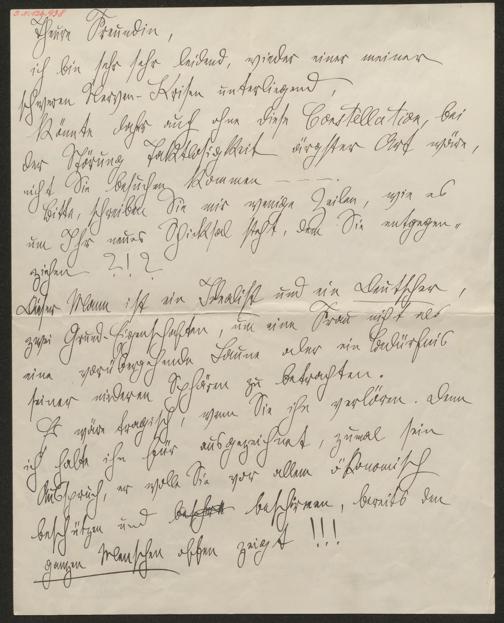 Theure Freundin,
ich bin sehr sehr leidend, wieder einer meiner
schweren Nerven-Krisen unterliegend,
Könnte daher auch ohne diese Constellation, bei
der Störung Taktlosigkeit ärgster Art wäre,
nicht Sie besuchen kommen
Bitte, schreiben Sie mir wenige Zeilen, wie es
um Ihr neues Schicksal steht, dem Sie entgegen-
ziehen ?!?
Dieser Mann ist ein Idealist und ein Deutscher,
zwei Grund-Eigenschaften, um eine Frau nicht als
eine vorübergehende Laune oder ein Bedürfnis
seiner niederen Sphären zu betrachten.
Es wäre tragisch, wenn Sie ihn verlören. Denn
ich halte ihn für ausgezeichnet, zumal sein
Ausspruch, er wolle Sie vor allem ökonomisch
beschützen und beschirmen, bereits den
ganzen Menschen offen zeigt !!!